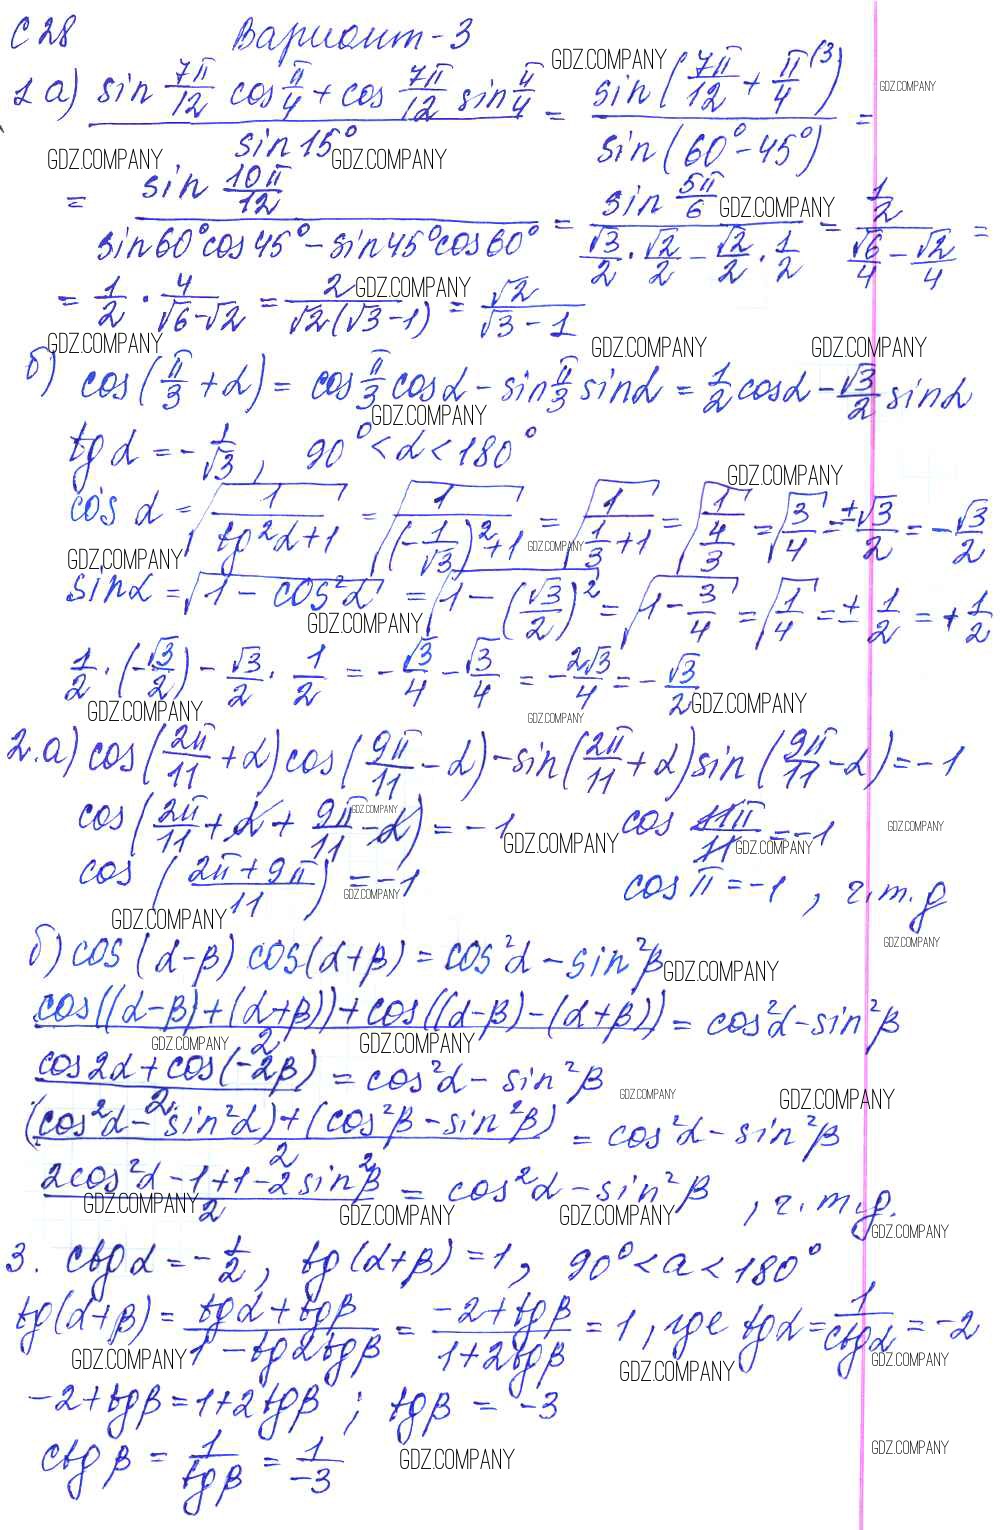 С 28 Вариант-3
1 а) (sin 7π/12 cos π/4 + cos 7π/12 sin π/4) / sin 15° = sin(7π/12 + π/4)^(3) / sin(60°-45°) =
= sin 10π/12 / (sin60°cos45° - sin45°cos60°) = sin 5π/6 / (√3/2 • √2/2 - √2/2 • 1/2) = 1/2 / (√6/4 - √2/4) =
= 1/2 • 4/(√6-√2) = 2/(√2(√3-1)) = √2/(√3-1)
б) cos(π/3 + α) = cos π/3 cosα - sin π/3 sinα = 1/2 cosα - √3/2 sinα
tg α = -1/√3, 90° < α < 180°
cos α = √(1/(tg²α+1)) = √(1/((-1/√3)²+1)) = √(1/(1/3+1)) = √(1/(4/3)) = √(3/4) = ±√3/2 = -√3/2
sinα = √(1 - cos²α) = √(1 - (√3/2)²) = √(1 - 3/4) = √(1/4) = ± 1/2 = +1/2
1/2 • (-√3/2) - √3/2 • 1/2 = -√3/4 - √3/4 = -2√3/4 = -√3/2
2. а) cos(2π/11 + α) cos(9π/11 - α) - sin(2π/11 + α) sin(9π/11 - α) = -1
cos(2π/11 + α + 9π/11 - α) = -1 cos 11π/11 = -1
cos((2π+9π)/11) = -1 cos π = -1, ч.т.д
б) cos(α-β) cos(α+β) = cos²α - sin²β
(cos((α-β)+(α+β)) + cos((α-β)-(α+β)))/2 = cos²α - sin²β
(cos2α + cos(-2β))/2 = cos²α - sin²β
((cos²α - sin²α) + (cos²β - sin²β))/2 = cos²α - sin²β
(2cos²α - 1 + 1 - 2 sin²β)/2 = cos²α - sin²β, ч.т.д.
3. ctg α = -1/2, tg(α+β) = 1, 90° < a < 180°
tg(α+β) = (tgα + tgβ)/(1 - tgαtgβ) = (-2 + tgβ)/(1+2tgβ) = 1, где tgα = 1/ctgα = -2
-2 + tgβ = 1 + 2tgβ; tgβ = -3
ctg β = 1/tgβ = 1/-3
GDZ.COMPANY